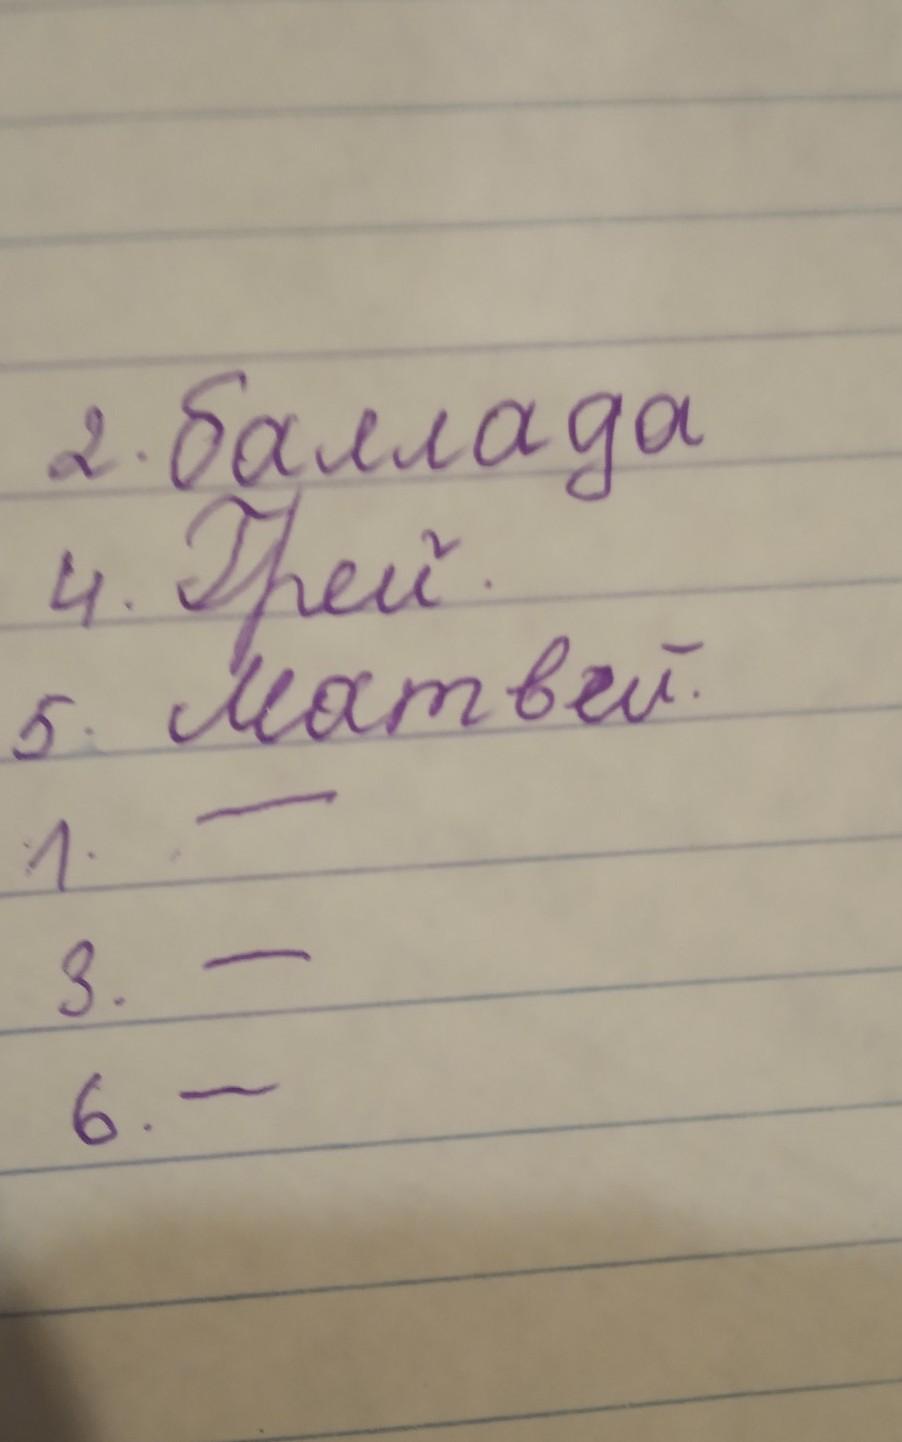 2. баллада
4. Грей.
5. Матвей.
1. —
3. —
6. —